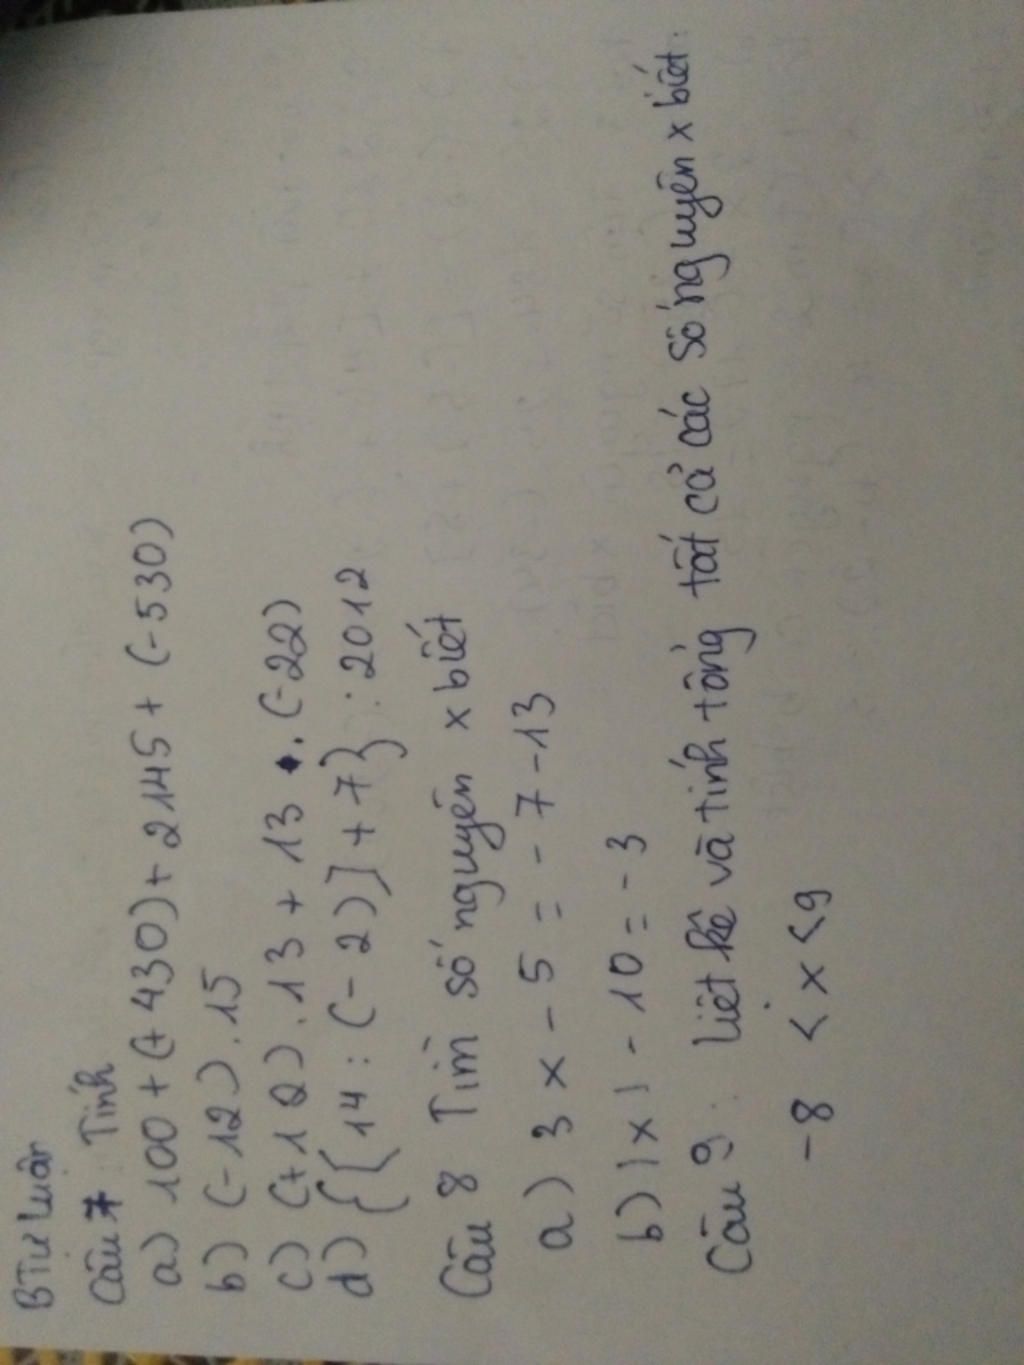 B Tự luận
Câu 7 Tính
a) 100 + (+ 430) + 2145 + (-530)
b) (-12) . 15
c) (+12) . 13 + 13 . (-22)
d) {[14 : (-2)] + 7} : 2012
Câu 8 Tìm số nguyên x biết
a) 3x - 5 = - 7 - 13
b) |x| - 10 = - 3
Câu 9: Liệt kê và tính tổng tất cả các số nguyên x biết:
-8 < x < 9